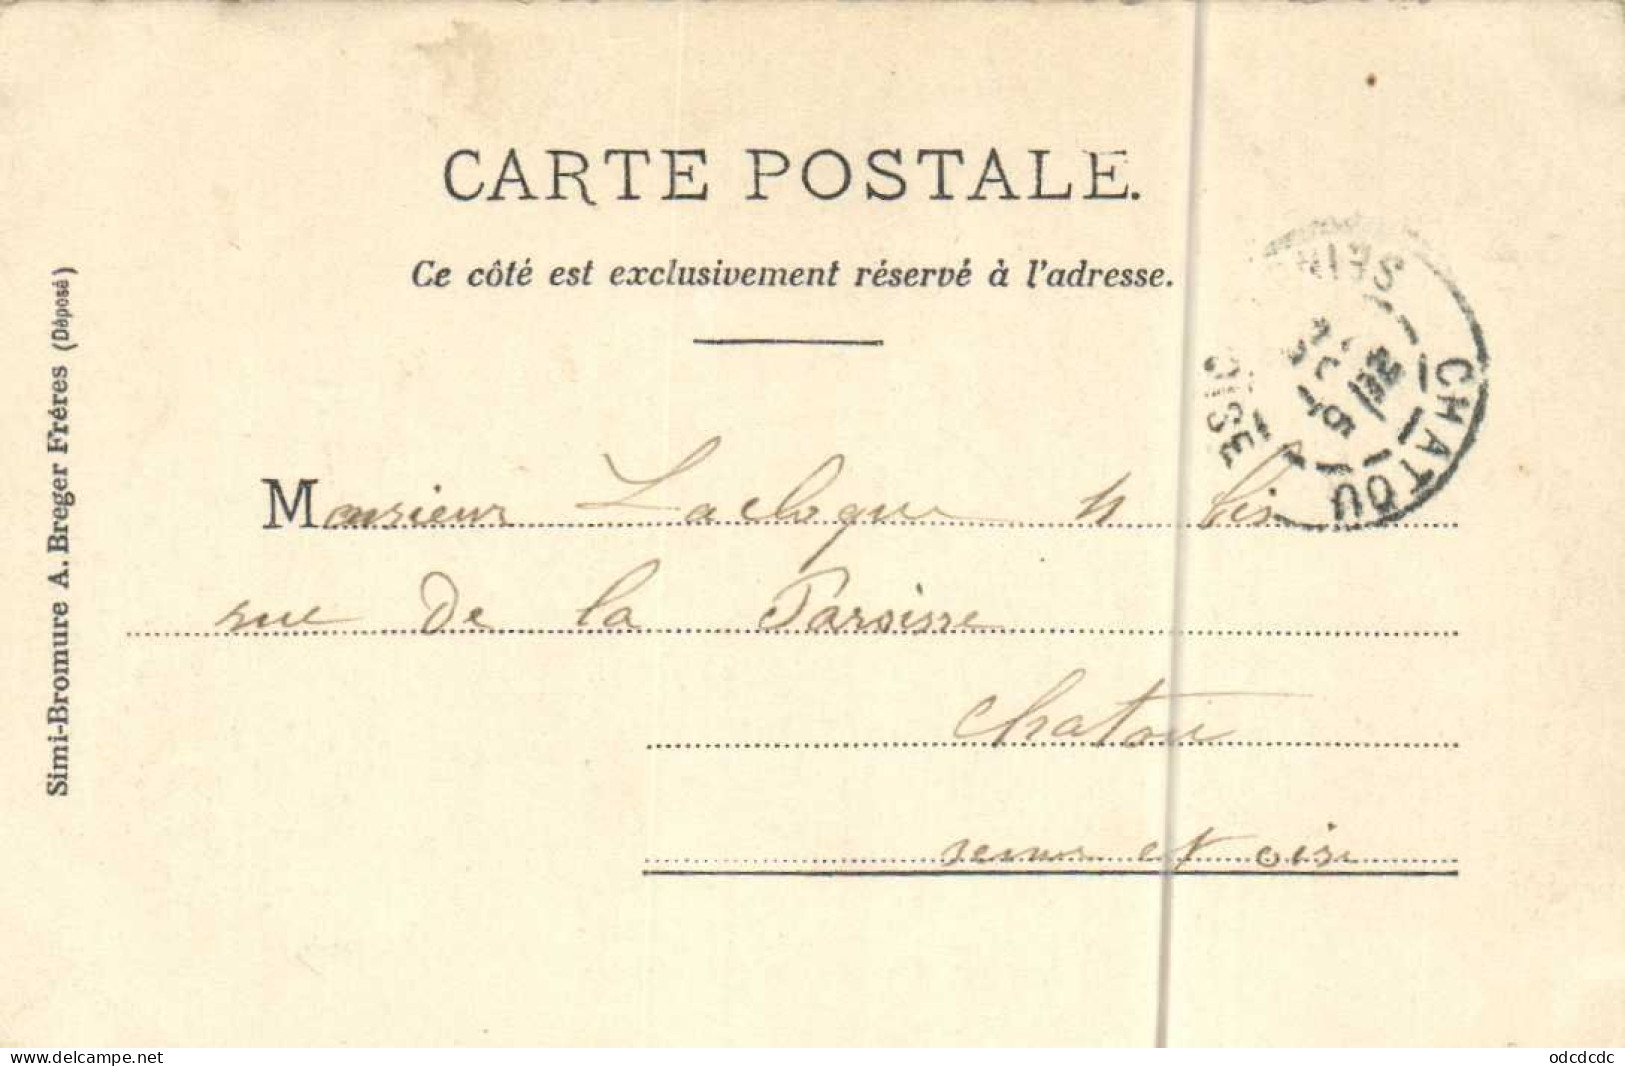 CARTE POSTALE.
Ce côté est exclusivement réservé à l'adresse.
Simi-Bromure A. Breger Fréres (Déposé)
CHATOU
OISE
Monsieur Laclogue bis
rue De la Paroisse
Chatou
seine et oise
www.delcampe.net
odcdcdc